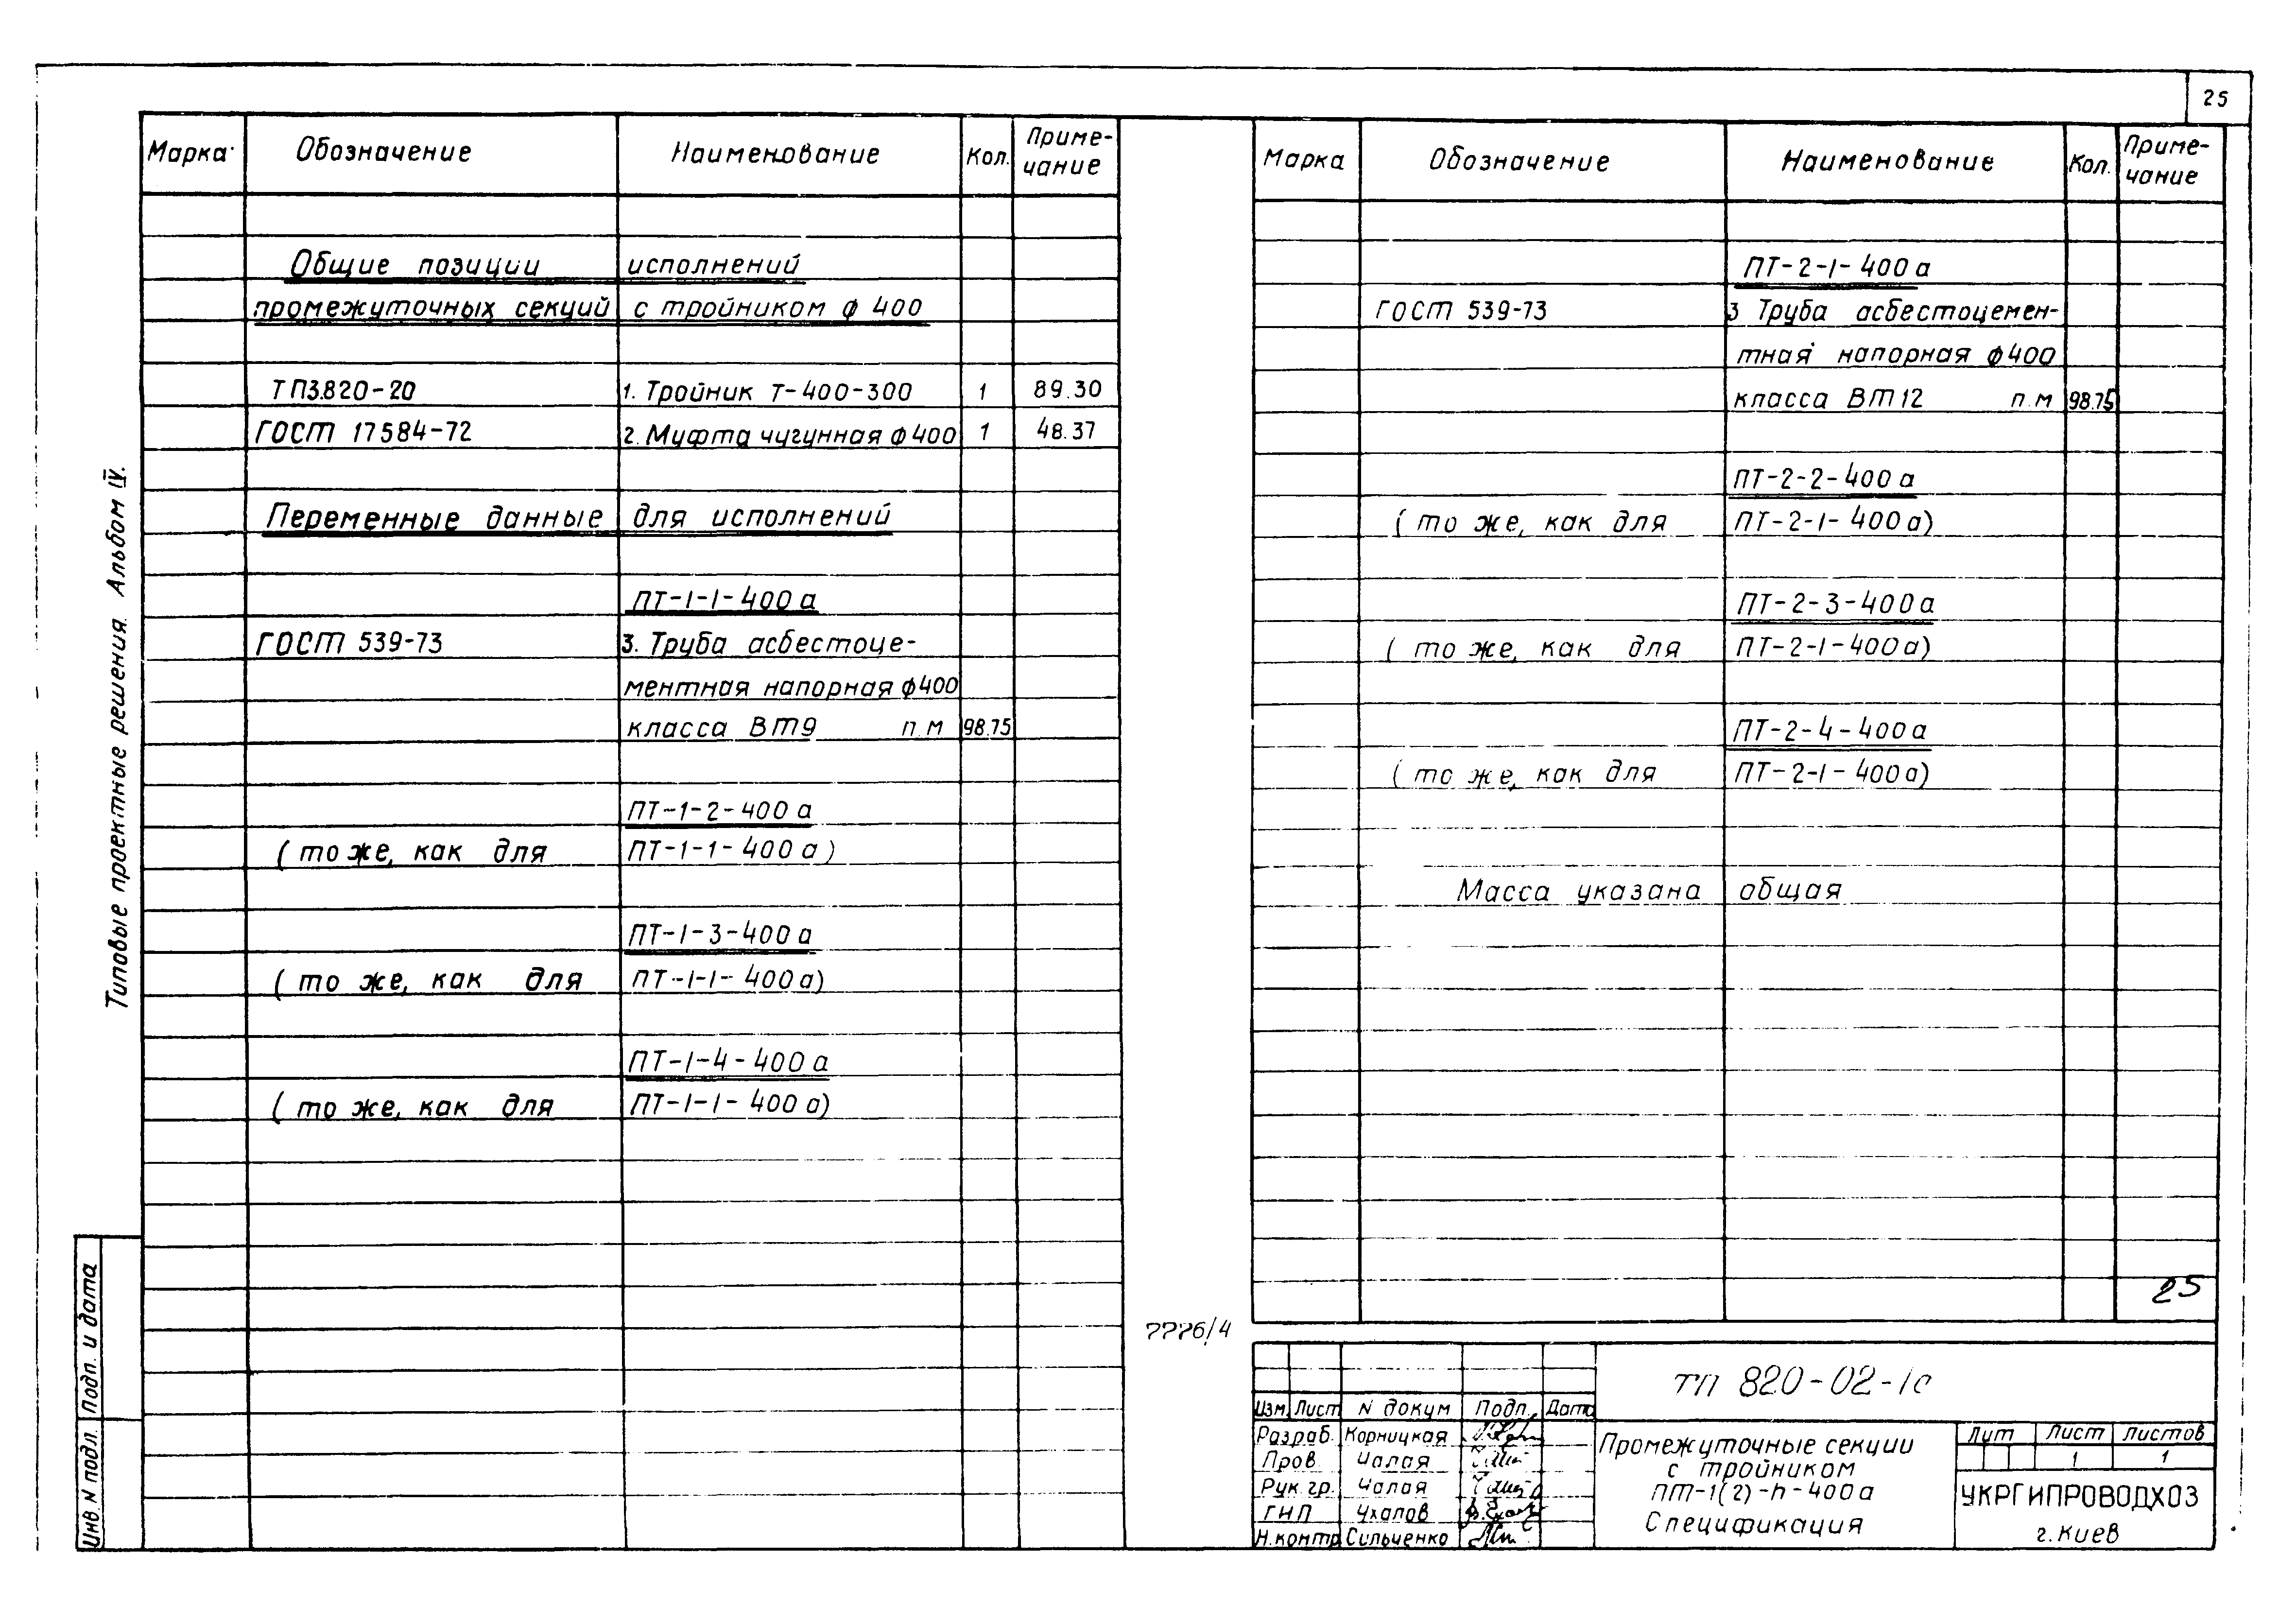 25
Марка Обозначение Наименование Кол. Приме-
чание
Общие позиции исполнений
промежуточных секций с тройником ф 400
ТП3.820-20 1. Тройник Т-400-300 1 89.30
ГОСТ 17584-72 2. Муфта чугунная ф400 1 48.37
Переменные данные для исполнений
ПТ-1-1-400а
ГОСТ 539-73 3. Труба асбестоце-
ментная напорная ф400
класса ВТ9 п.м 98.75
ПТ-1-2-400а
(то же, как для ПТ-1-1-400а)
ПТ-1-3-400а
(то же, как для ПТ-1-1-400а)
ПТ-1-4-400а
(то же, как для ПТ-1-1-400а)
Марка Обозначение Наименование Кол. Приме-
чание
ПТ-2-1-400а
ГОСТ 539-73 3 Труба асбестоцемен-
тная напорная ф400
класса ВТ12 п.м 98.75
ПТ-2-2-400а
(то же, как для ПТ-2-1-400а)
ПТ-2-3-400а
(то же, как для ПТ-2-1-400а)
ПТ-2-4-400а
(то же, как для ПТ-2-1-400а)
Масса указана общая
25
Типовые проектные решения. Альбом IV.
Инв. N подл. Подп. и дата
ТП 820-02-1с
Изм. Лист N докум Подп. Дата
Разраб. Корницкая
Пров. Чалая
Рук. гр. Чалая
ГИП Ухалов
Н.контр Сильченко
Промежуточные секции
с тройником
ПТ-1(2)-n-400а
Спецификация
Лит Лист Листов
1 1
УКРГИПРОВОДХОЗ
г. Киев